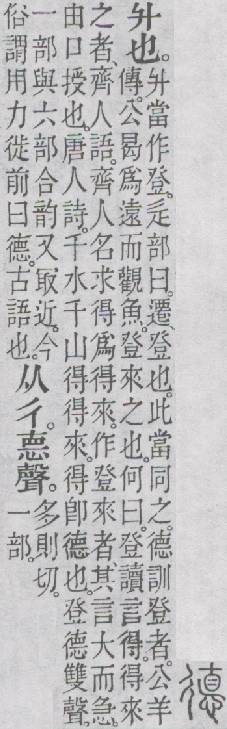 德
升也。升當作登。辵部曰。遷、登也。此當同之。德訓登者。公羊
傳。公曷爲遠而觀魚。登來之也。何曰。登讀言得。得來
之者、齊人語。齊人名求得爲得來。作登來者、其言大而急。
由口授也。唐人詩。千水千山得得來。得卽德也。登德雙聲。
一部與六部合韵又取近。今
俗謂用力徙前曰德。古語也。从彳。悳聲。多則切。
一部。